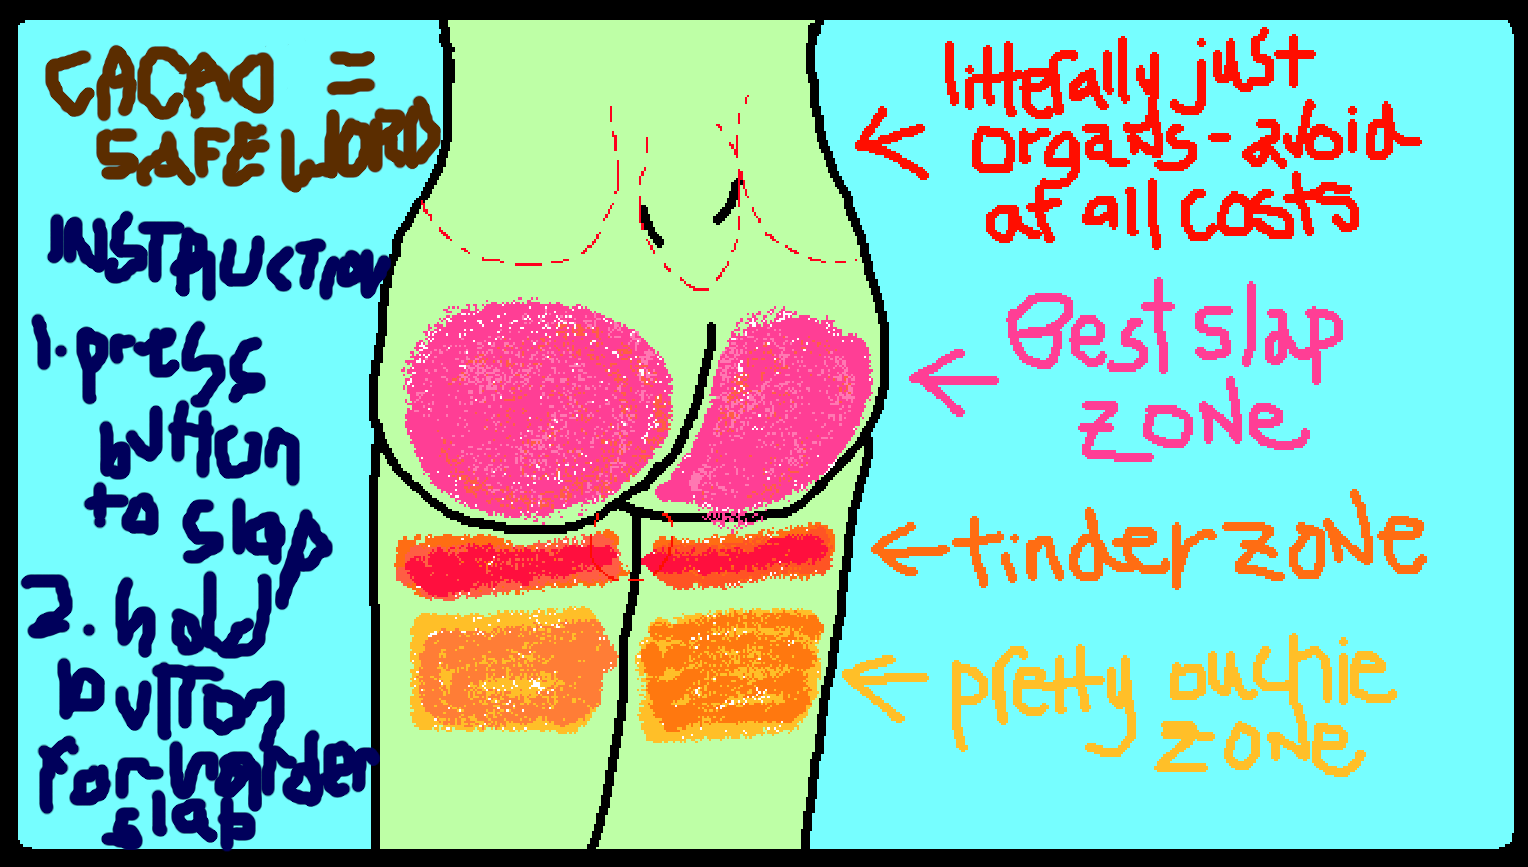 CACAO =
SAFEWORD
INSTRUCTION
1. press
button
to slap
2. hold
button
for harder
slap
litterally just
organs - avoid
at all costs
Best slap
zone
tinder zone
pretty ouchie
zone